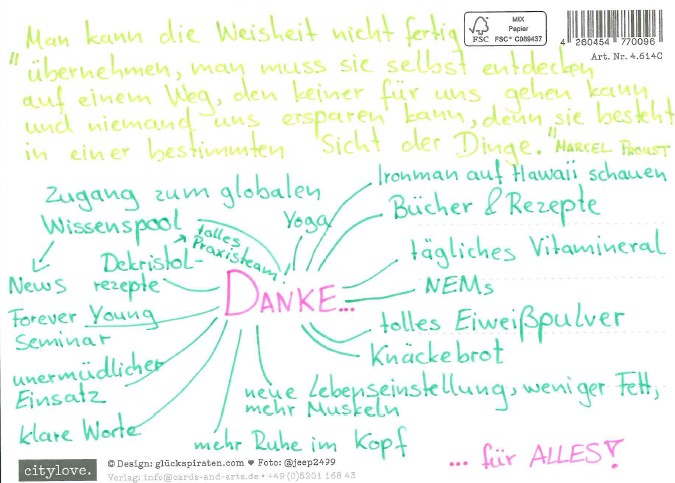 Man kann die Weisheit nicht fertig
"übernehmen, man muss sie selbst entdecken
auf einem Weg, den keiner für uns gehen kann
und niemand uns ersparen kann, denn sie besteht
in einer bestimmten Sicht der Dinge." MARCEL PROUST
FSC
MIX
Papier
FSC® C089437
4 260454 770096
Art. Nr. 4.614C
Ironman auf Hawaii schauen
Zugang zum globalen
Wissenspool
Yoga
Bücher & Rezepte
tolles
Praxisteam
tägliches Vitamineral
Dekristol-
rezepte
News
NEMs
DANKE...
Forever Young
Seminar
tolles Eiweißpulver
Knäckebrot
unermüdlicher
Einsatz
neue Lebenseinstellung, weniger Fett,
mehr Muskeln
klare Worte
mehr Ruhe im Kopf
... für ALLES!
citylove.
© Design: glückspiraten.com ♥ Foto: @jeep2499
Verlag: info@cards-and-arts.de • +49 (0)5201 168 43